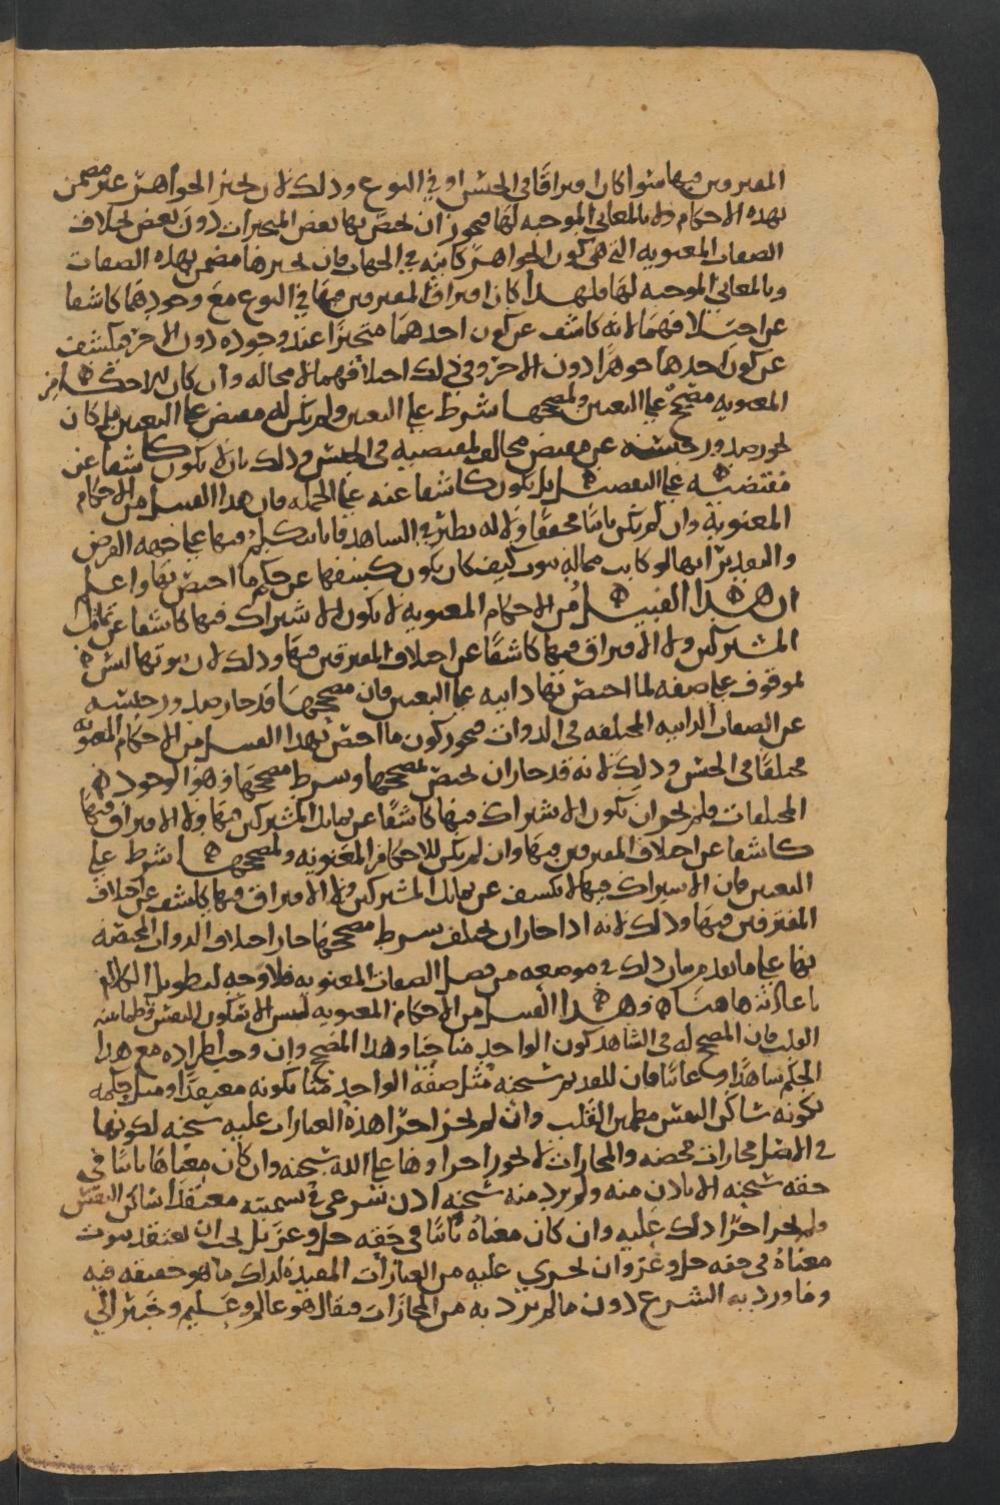 المفترقين فيها متى كان افتراقا في الجنس او في النوع وذلك لان تحيز الجواهر غير مضمن
بهذه الاحكام ولا بالمعاني الموجبه لها فيجوز ان يختص بها بعض المتحيزات دون بعض بخلاف
الصفات المعنويه التي هي كون الجواهر كاينه في الجهات فان تحيزها مضمن بهذه الصفات
وبالمعاني الموجبه لها فلهذا كان افتراق المفترقين فيها في النوع مع وجودهما كاشفا
عن اختلافهما لانه كاشف عن كون احدهما متحيزا عند وجوده دون الاخر فيكشف
عن كون احدهما جوهرا دون الاخر وفي ذلك اختلافهما لا محاله وان كان للاحكام
المعنويه مصحح على التعيين ولمصححها شرط على التعيين ولم يكن له مقتض على التعيين بل كان
يجوز صدور جنسه عن مقتض مخالف لمقتضيه في الجنس وذلك بان لا يكون كاشفا عن
مقتضيه على التفصيل بل يكون كاشفا عنه على الجمله فان هذا القبيل من الاحكام
المعنوية وان لم يكن ثابتا محققا ولا له نظير في الشاهد فانا نتكلم فيها على جهه الفرض
والتقدير انها لو كانت مما له ثبوت كيف كان يكون كشفها عن حكم ما اختص بها واعلم
ان هذا القبيل من الاحكام المعنويه لا يكون الاشتراك فيها كاشفا عن تماثل
المشتركين ولا الافتراق فيها كاشفا عن اختلاف المفترقين فيها وذلك لان ثبوتها ليس
بموقوف على صفه لما اختص بها ذاتيه على التعيين فان مصححها قد جاز صدور جنسه
عن الصفات الذاتيه المختلفه في الذوات فيجوز كون ما اختص بهذا القبيل من الاحكام المعنويه
مختلفا في الجنس وذلك لانه قد جاز ان يختص بمصححها وبشرط مصححها وهو الوجود
المختلفات فلم يجز ان يكون الاشتراك فيها كاشفا عن تماثل المشتركين فيها ولا الافتراق فيها
كاشفا عن اختلاف المفترقين فيها وان لم يكن للاحكام المعنويه ولمصححها شرط على
التعيين فان الاشتراك فيها لا يكشف عن تماثل المشتركين ولا الافتراق فيها كاشف عن اختلاف
المفترقين فيها وذلك لانه اذا جاز ان يختلف شرط مصححها جاز اختلاف الذوات المختصه
بها على ما تقدم بيان ذلك في موضعه من فصل الصفات المعنويه فلا وجه لتطويل الكلام
باعادته هاهنا وهذا القبيل من الاحكام المعنويه ليس الا سكون النفس وطمانينه
القلب فان المصحح له في الشاهد كون الواحد منا حيا وهذا المصحح وان وجب اطراده مع هذا
الحكم شاهدا وغايبا فان للقديم سبحنه مثل صفة الواحد منا بكونه معتقدا ومثل حكمه
بكونه ساكن النفس مطمين القلب وان لم يجز اجرا هذه العبارات عليه سبحنه لكونها
في الاصل مجازات محضه والمجازات لا يجوز اجراوها على الله سبحنه وان كان معناها ثابتا في
حقه سبحنه الا باذن منه ولم يرد منه سبحنه اذن شرعي في تسميته معتقدا ساكن النفس
ولم يجز اجرا ذلك عليه وان كان معناه ثابتا في حقه جل وعز بل يجب ان يعتقد ثبوت
معناه في حقه جل وعز وان يجري عليه من العبارات المفيده لذلك ما هو حقيقه فيه
وما ورد به الشرع دون ما لم يرد به من المجازات فيقال هو عالم وعليم وخبير الى